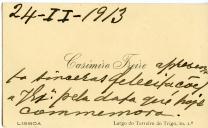 24-II-1913
Casimiro Freire apresen-
ta sinceras felicitações
a V. Ex.ª pela data que hoje
commemora.
LISBOA Largo do Terreiro do Trigo, n.º 1